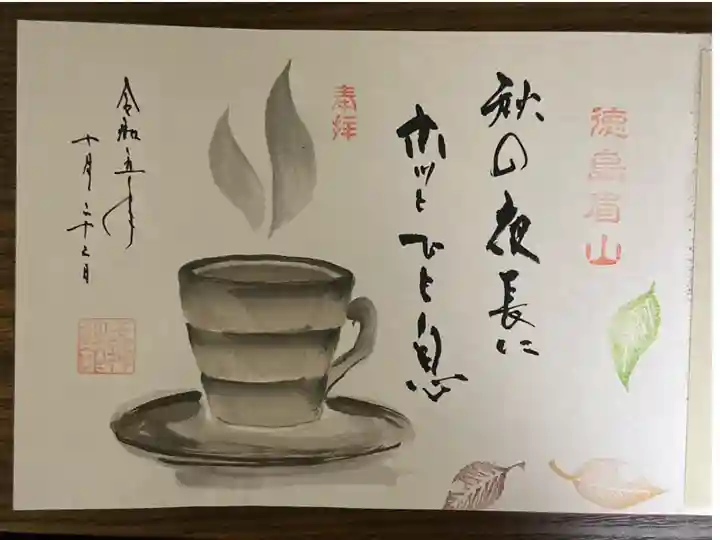 徳島眉山
秋の夜長に
ホッとひと息
奉拝
令和五年
十月二十七日